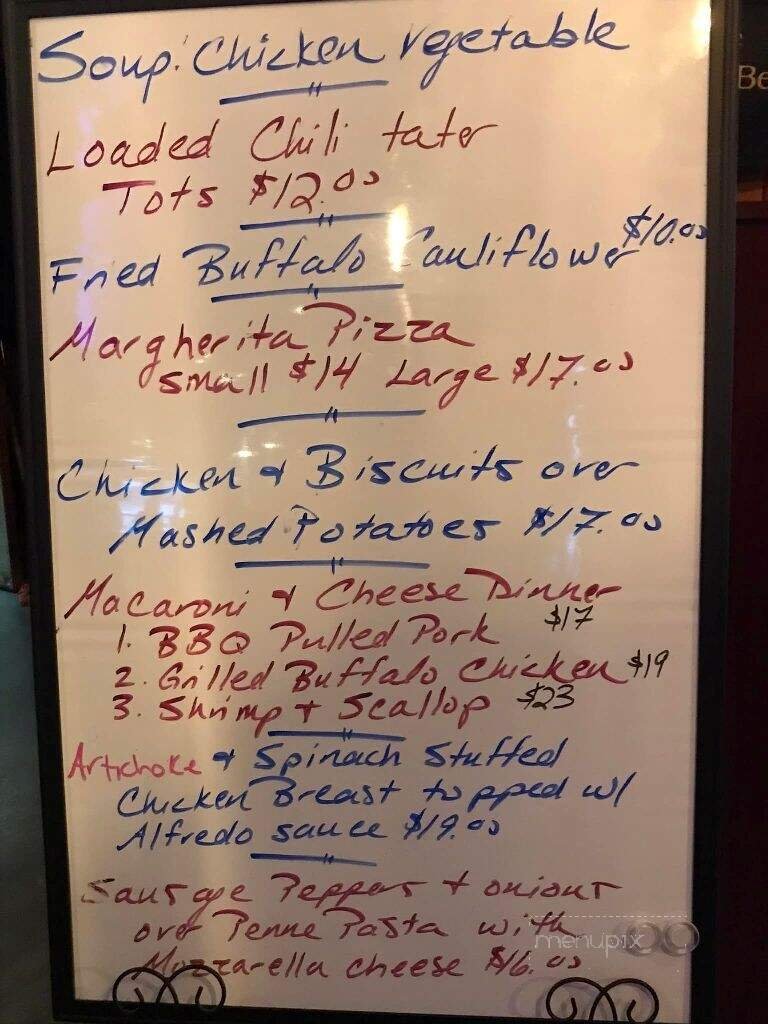 Soup: Chicken vegetable
Loaded Chili tater
Tots $12.00
Fried Buffalo Cauliflower $10.00
Margherita Pizza
Small $14 Large $17.00
Chicken & Biscuits over
Mashed Potatoes $17.00
Macaroni & Cheese Dinner
1. BBQ Pulled Pork $17
2. Grilled Buffalo Chicken $19
3. Shrimp & Scallop $23
Artichoke & Spinach Stuffed
Chicken Breast topped w/
Alfredo sauce $19.00
Sausage Peppers & onions
over Penne Pasta with
Mozzarella cheese $16.00
menupix
Be